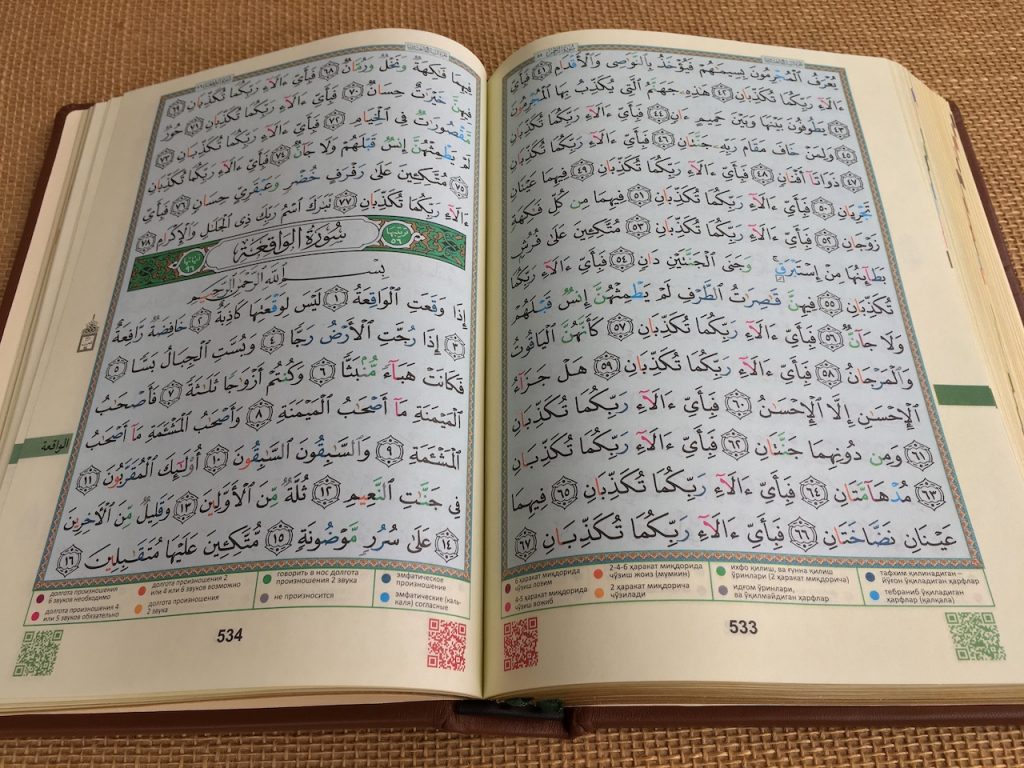 يُعْرَفُ ٱلْمُجْرِمُونَ بِسِيمَٰهُمْ فَيُؤْخَذُ بِٱلنَّوَٰصِى وَٱلْأَقْدَامِ ٤١ فَبِأَىِّ
ءَالَآءِ رَبِّكُمَا تُكَذِّبَانِ ٤٢ هَٰذِهِۦ جَهَنَّمُ ٱلَّتِى يُكَذِّبُ بِهَا ٱلْمُجْرِمُونَ
٤٣ يَطُوفُونَ بَيْنَهَا وَبَيْنَ حَمِيمٍ ءَانٍ ٤٤ فَبِأَىِّ ءَالَآءِ رَبِّكُمَا تُكَذِّبَانِ
٤٥ وَلِمَنْ خَافَ مَقَامَ رَبِّهِۦ جَنَّتَانِ ٤٦ فَبِأَىِّ ءَالَآءِ رَبِّكُمَا تُكَذِّبَانِ
٤٧ ذَوَاتَآ أَفْنَانٍ ٤٨ فَبِأَىِّ ءَالَآءِ رَبِّكُمَا تُكَذِّبَانِ ٤٩ فِيهِمَا عَيْنَانِ
تَجْرِيَانِ ٥٠ فَبِأَىِّ ءَالَآءِ رَبِّكُمَا تُكَذِّبَانِ ٥١ فِيهِمَا مِن كُلِّ فَٰكِهَةٍ
زَوْجَانِ ٥٢ فَبِأَىِّ ءَالَآءِ رَبِّكُمَا تُكَذِّبَانِ ٥٣ مُتَّكِـِٔينَ عَلَىٰ فُرُشٍۭ
بَطَآئِنُهَا مِنْ إِسْتَبْرَقٍ ۚ وَجَنَى ٱلْجَنَّتَيْنِ دَانٍ ٥٤ فَبِأَىِّ ءَالَآءِ رَبِّكُمَا
تُكَذِّبَانِ ٥٥ فِيهِنَّ قَٰصِرَٰتُ ٱلطَّرْفِ لَمْ يَطْمِثْهُنَّ إِنسٌ قَبْلَهُمْ
وَلَا جَآنٌّ ٥٦ فَبِأَىِّ ءَالَآءِ رَبِّكُمَا تُكَذِّبَانِ ٥٧ كَأَنَّهُنَّ ٱلْيَاقُوتُ
وَٱلْمَرْجَانُ ٥٨ فَبِأَىِّ ءَالَآءِ رَبِّكُمَا تُكَذِّبَانِ ٥٩ هَلْ جَزَآءُ
ٱلْإِحْسَٰنِ إِلَّا ٱلْإِحْسَٰنُ ٦٠ فَبِأَىِّ ءَالَآءِ رَبِّكُمَا تُكَذِّبَانِ
٦١ وَمِن دُونِهِمَا جَنَّتَانِ ٦٢ فَبِأَىِّ ءَالَآءِ رَبِّكُمَا تُكَذِّبَانِ
٦٣ مُدْهَآمَّتَانِ ٦٤ فَبِأَىِّ ءَالَآءِ رَبِّكُمَا تُكَذِّبَانِ ٦٥ فِيهِمَا
عَيْنَانِ نَضَّاخَتَانِ ٦٦ فَبِأَىِّ ءَالَآءِ رَبِّكُمَا تُكَذِّبَانِ ٦٧
6 ҳаракат миқдорида чўзиш лозим
4-5 ҳаракат миқдорида чўзиш вожиб
2-4-6 ҳаракат миқдорида чўзиш жоиз (мумкин)
2 ҳаракат миқдорича чўзилади
ихфо қилиш, ва ғунна қилиш ўринлари (2 ҳаракат миқдорича)
идғом ўринлари, ва ўқилмайдиган ҳарфлар
тафхим қилинадиган – йўғон ўқиладиган ҳарфлар
тебраниб ўқиладиган ҳарфлар (қалқала)
533
فِيهِمَا فَٰكِهَةٌ وَنَخْلٌ وَرُمَّانٌ ٦٨ فَبِأَىِّ ءَالَآءِ رَبِّكُمَا تُكَذِّبَانِ ٦٩
فِيهِنَّ خَيْرَٰتٌ حِسَانٌ ٧٠ فَبِأَىِّ ءَالَآءِ رَبِّكُمَا تُكَذِّبَانِ ٧١ حُورٌ
مَّقْصُورَٰتٌ فِى ٱلْخِيَامِ ٧٢ فَبِأَىِّ ءَالَآءِ رَبِّكُمَا تُكَذِّبَانِ ٧٣
لَمْ يَطْمِثْهُنَّ إِنسٌ قَبْلَهُمْ وَلَا جَآنٌّ ٧٤ فَبِأَىِّ ءَالَآءِ رَبِّكُمَا تُكَذِّبَانِ
٧٥ مُتَّكِـِٔينَ عَلَىٰ رَفْرَفٍ خُضْرٍ وَعَبْقَرِىٍّ حِسَانٍ ٧٦ فَبِأَىِّ
ءَالَآءِ رَبِّكُمَا تُكَذِّبَانِ ٧٧ تَبَٰرَكَ ٱسْمُ رَبِّكَ ذِى ٱلْجَلَٰلِ وَٱلْإِكْرَامِ ٧٨
سُورَةُ الْوَاقِعَةِ
بِسْمِ ٱللَّهِ ٱلرَّحْمَٰنِ ٱلرَّحِيمِ
إِذَا وَقَعَتِ ٱلْوَاقِعَةُ ١ لَيْسَ لِوَقْعَتِهَا كَاذِبَةٌ ٢ خَافِضَةٌ رَّافِعَةٌ
٣ إِذَا رُجَّتِ ٱلْأَرْضُ رَجًّا ٤ وَبُسَّتِ ٱلْجِبَالُ بَسًّا ٥
فَكَانَتْ هَبَآءً مُّنۢبَثًّا ٦ وَكُنتُمْ أَزْوَٰجًا ثَلَٰثَةً ٧ فَأَصْحَٰبُ
ٱلْمَيْمَنَةِ مَآ أَصْحَٰبُ ٱلْمَيْمَنَةِ ٨ وَأَصْحَٰبُ ٱلْمَشْـَٔمَةِ مَآ أَصْحَٰبُ
ٱلْمَشْـَٔمَةِ ٩ وَٱلسَّٰبِقُونَ ٱلسَّٰبِقُونَ ١٠ أُو۟لَٰٓئِكَ ٱلْمُقَرَّبُونَ ١١
فِى جَنَّٰتِ ٱلنَّعِيمِ ١٢ ثُلَّةٌ مِّنَ ٱلْأَوَّلِينَ ١٣ وَقَلِيلٌ مِّنَ ٱلْءَاخِرِينَ
١٤ عَلَىٰ سُرُرٍ مَّوْضُونَةٍ ١٥ مُّتَّكِـِٔينَ عَلَيْهَا مُتَقَٰبِلِينَ ١٦
الواقعة
долгота произношения 6 звуков необходимо
долгота произношения 4 или 5 звуков обязательно
долгота произношения 2 или 4 или 6 звуков возможно
долгота произношения 2 звука
говорить в нос долгота произношения 2 звука
не произносится
эмфатическое произношение
эмфатические (калькаля) согласные
534